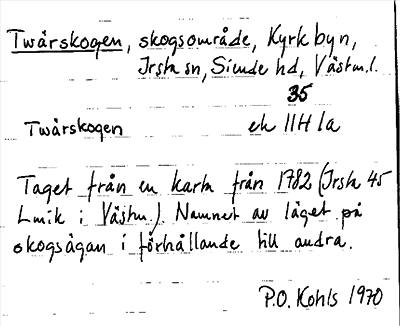 Twärskogen, skogsområde, Kyrkbyn,
Irsta sn, Siende hd, Västm.l.
35
Twärskogen ek 11H 1a
Taget från en karta från 1782 (Irsta 45
Lmtk i Västm.). Namnet av läget på
skogsägan i förhållande till andra.
P.O. Kohls 1970